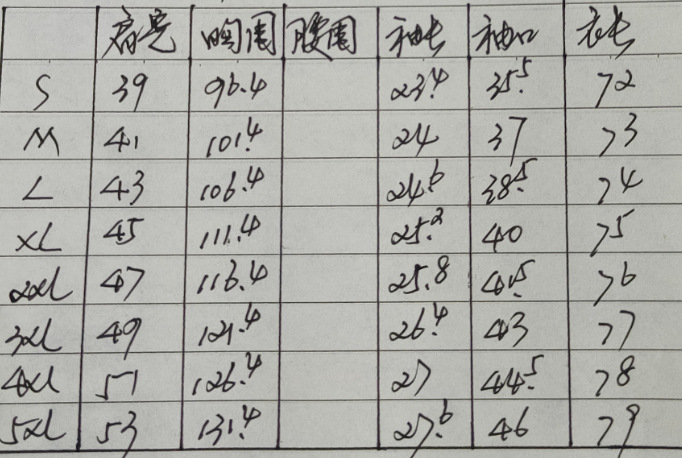 肩宽 胸围 腰围 袖长 袖口 衣长
S 39 96.4 23.4 35.5 72
M 41 101.4 24 37 73
L 43 106.4 24.6 38.5 74
XL 45 111.4 25.2 40 75
2XL 47 116.4 25.8 41.5 76
3XL 49 121.4 26.4 43 77
4XL 51 126.4 27 44.5 78
5XL 53 131.4 27.6 46 79